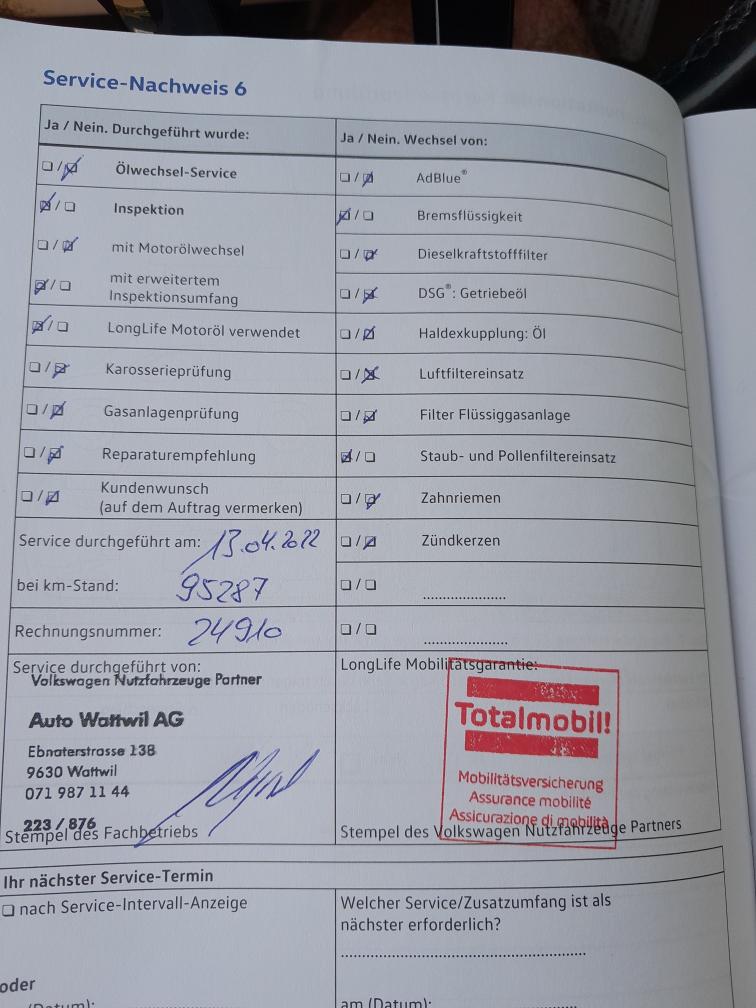 Service-Nachweis 6
Ja / Nein. Durchgeführt wurde:
☐ / ☑ Ölwechsel-Service
☑ / ☐ Inspektion
☐ / ☑ mit Motorölwechsel
☑ / ☐ mit erweitertem
Inspektionsumfang
☑ / ☐ LongLife Motoröl verwendet
☐ / ☑ Karosserieprüfung
☐ / ☑ Gasanlagenprüfung
☐ / ☑ Reparaturempfehlung
☐ / ☑ Kundenwunsch
(auf dem Auftrag vermerken)
Service durchgeführt am: 13.04.2022
bei km-Stand: 95287
Rechnungsnummer: 24910
Service durchgeführt von:
Volkswagen Nutzfahrzeuge Partner
Auto Wattwil AG
Ebnaterstrasse 138
9630 Wattwil
071 987 11 44
223 / 876
Stempel des Fachbetriebs
Ja / Nein. Wechsel von:
☐ / ☑ AdBlue®
☑ / ☐ Bremsflüssigkeit
☐ / ☑ Dieselkraftstofffilter
☐ / ☑ DSG®: Getriebeöl
☐ / ☑ Haldexkupplung: Öl
☐ / ☑ Luftfiltereinsatz
☐ / ☑ Filter Flüssiggasanlage
☑ / ☐ Staub- und Pollenfiltereinsatz
☐ / ☑ Zahnriemen
☐ / ☑ Zündkerzen
☐ / ☐ ......................
☐ / ☐ ......................
LongLife Mobilitätsgarantie:
Totalmobil!
Mobilitätsversicherung
Assurance mobilité
Assicurazione di mobilità
Stempel des Volkswagen Nutzfahrzeuge Partners
Ihr nächster Service-Termin
☐ nach Service-Intervall-Anzeige
oder
(Datum):
Welcher Service/Zusatzumfang ist als
nächster erforderlich?
..................................................
am (Datum):